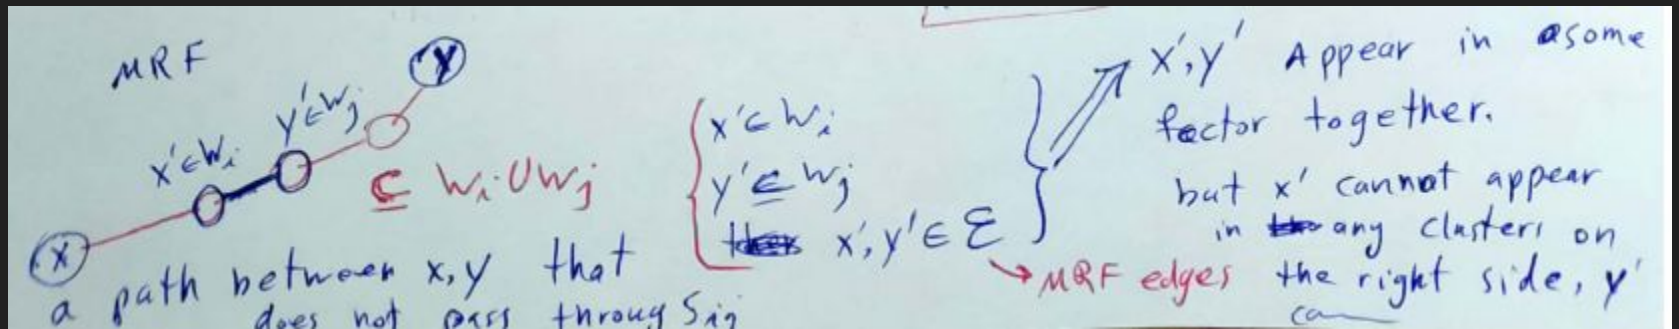 MRF
Y
y'∈Wj
x'∈Wi
X
⊆ Wi ∪ Wj
a path between x, y that
does not pass throug Sij
x' ⊂ Wi
y' ⊆ Wj
x', y' ∈ Ɛ
MRF edges
x', y' Appear in some
factor together.
but x' cannot appear
in any clusters on
the right side, y'
can